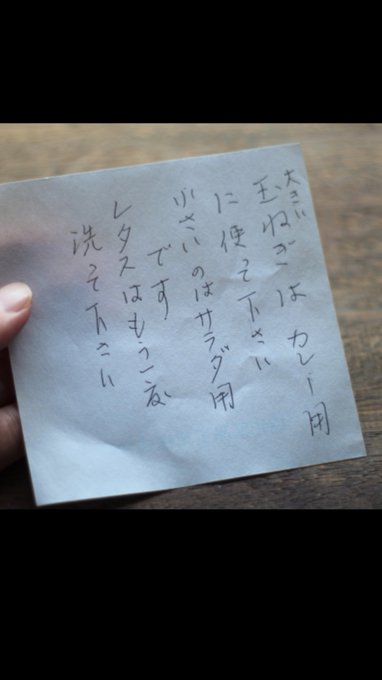 大きい
玉ねぎは カレー用
に使って下さい
小さいのはサラダ用
です
レタスはもう一度
洗って下さい